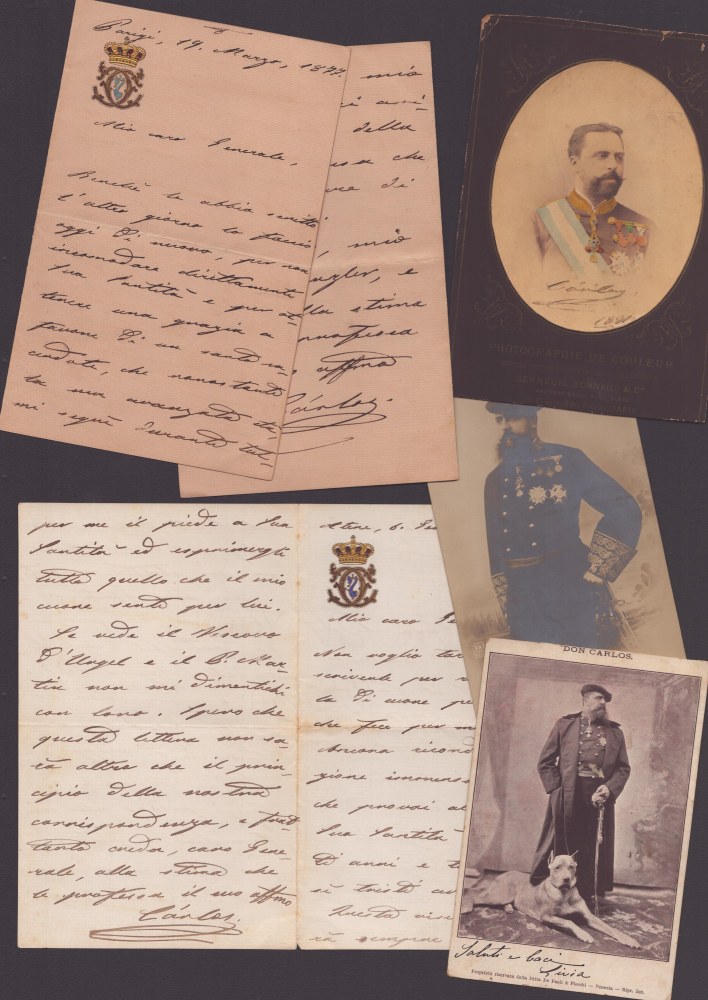 Parigi, 19. Marzo, 1877.
Mio caro Generale,
Benchè le abbia scritto
l'altro giorno lo faccio
oggi di nuovo, per non
incomodare direttamente
Sua Santità e per ot-
tenere una grazia a
favore di un santo sa-
cerdote, che nonostante
la sua avanzata età
mi seguì durante tut-
mio
della
che
di
mio
e
stima
professa
affmo
Cárlos.
Cárlos
PHOTOGRAPHIE DE COULEUR
& Cie
per me il piede a Sua
Santità ed esprimergli
tutto quello che il mio
cuore sente per lui.
Se vede il Vescovo
d'Urgel e il P. Mar-
tin non mi dimentichi
con loro. Spero che
questa lettera non sa-
rà altro che il prin-
cipio della nostra
corrispondenza, e frat-
tanto creda, caro Gene-
rale, alla stima che
le professa il suo affmo
Cárlos.
Atene, 6.
Mio caro
Non voglio
scriverle per
di cuore
che fece per
Ancora
zione
che provai
Sua Santità
di anni e
sì tristi
Questa
rà sempre
DON CARLOS.
Saluti e baci
Livia
Proprietà riservata della Ditta De Paoli & Venezia - Ripr. Int.